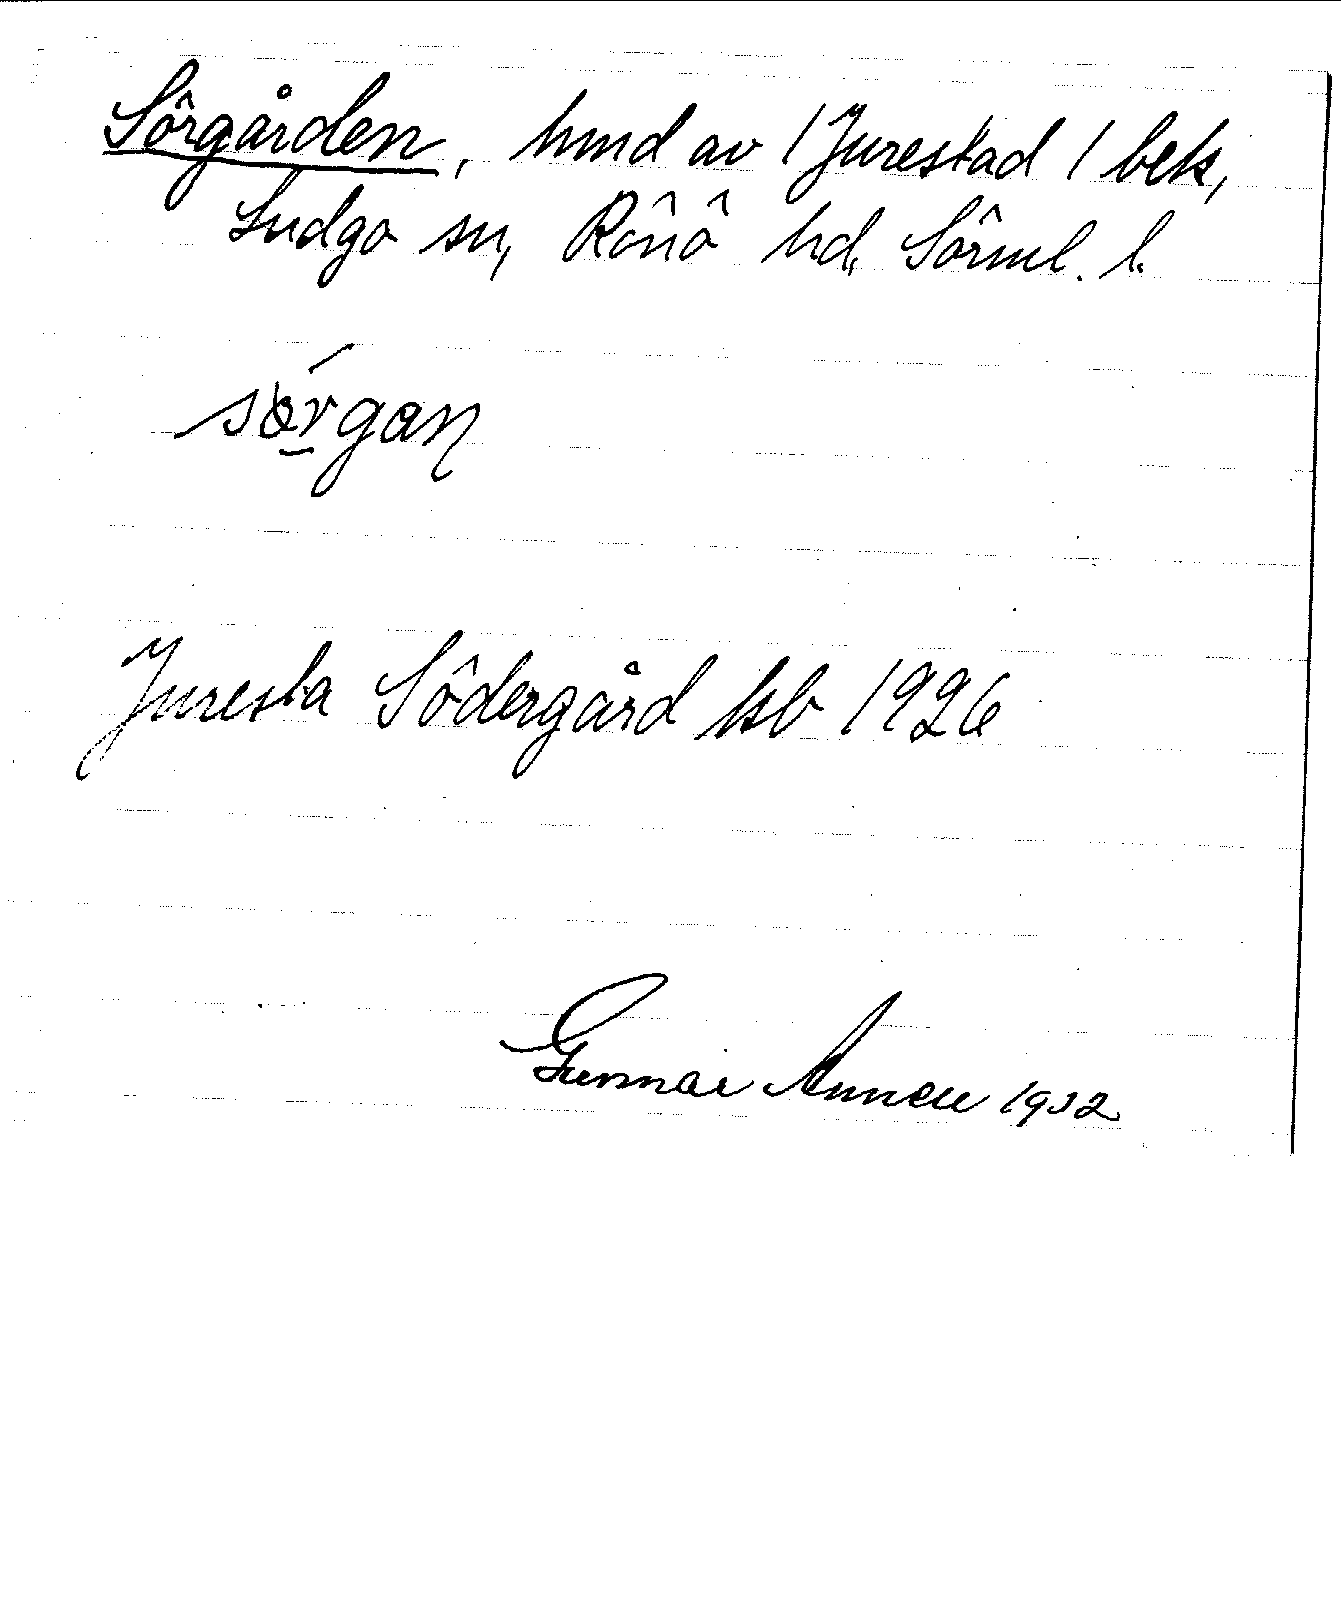 Sörgården, hmd av /Jurestad/ bek,
Ludgo sn, Rönö hd, Sörml. l.
sørgan
Juresta Södergård ksb 1926
Gunnar Annell 1932